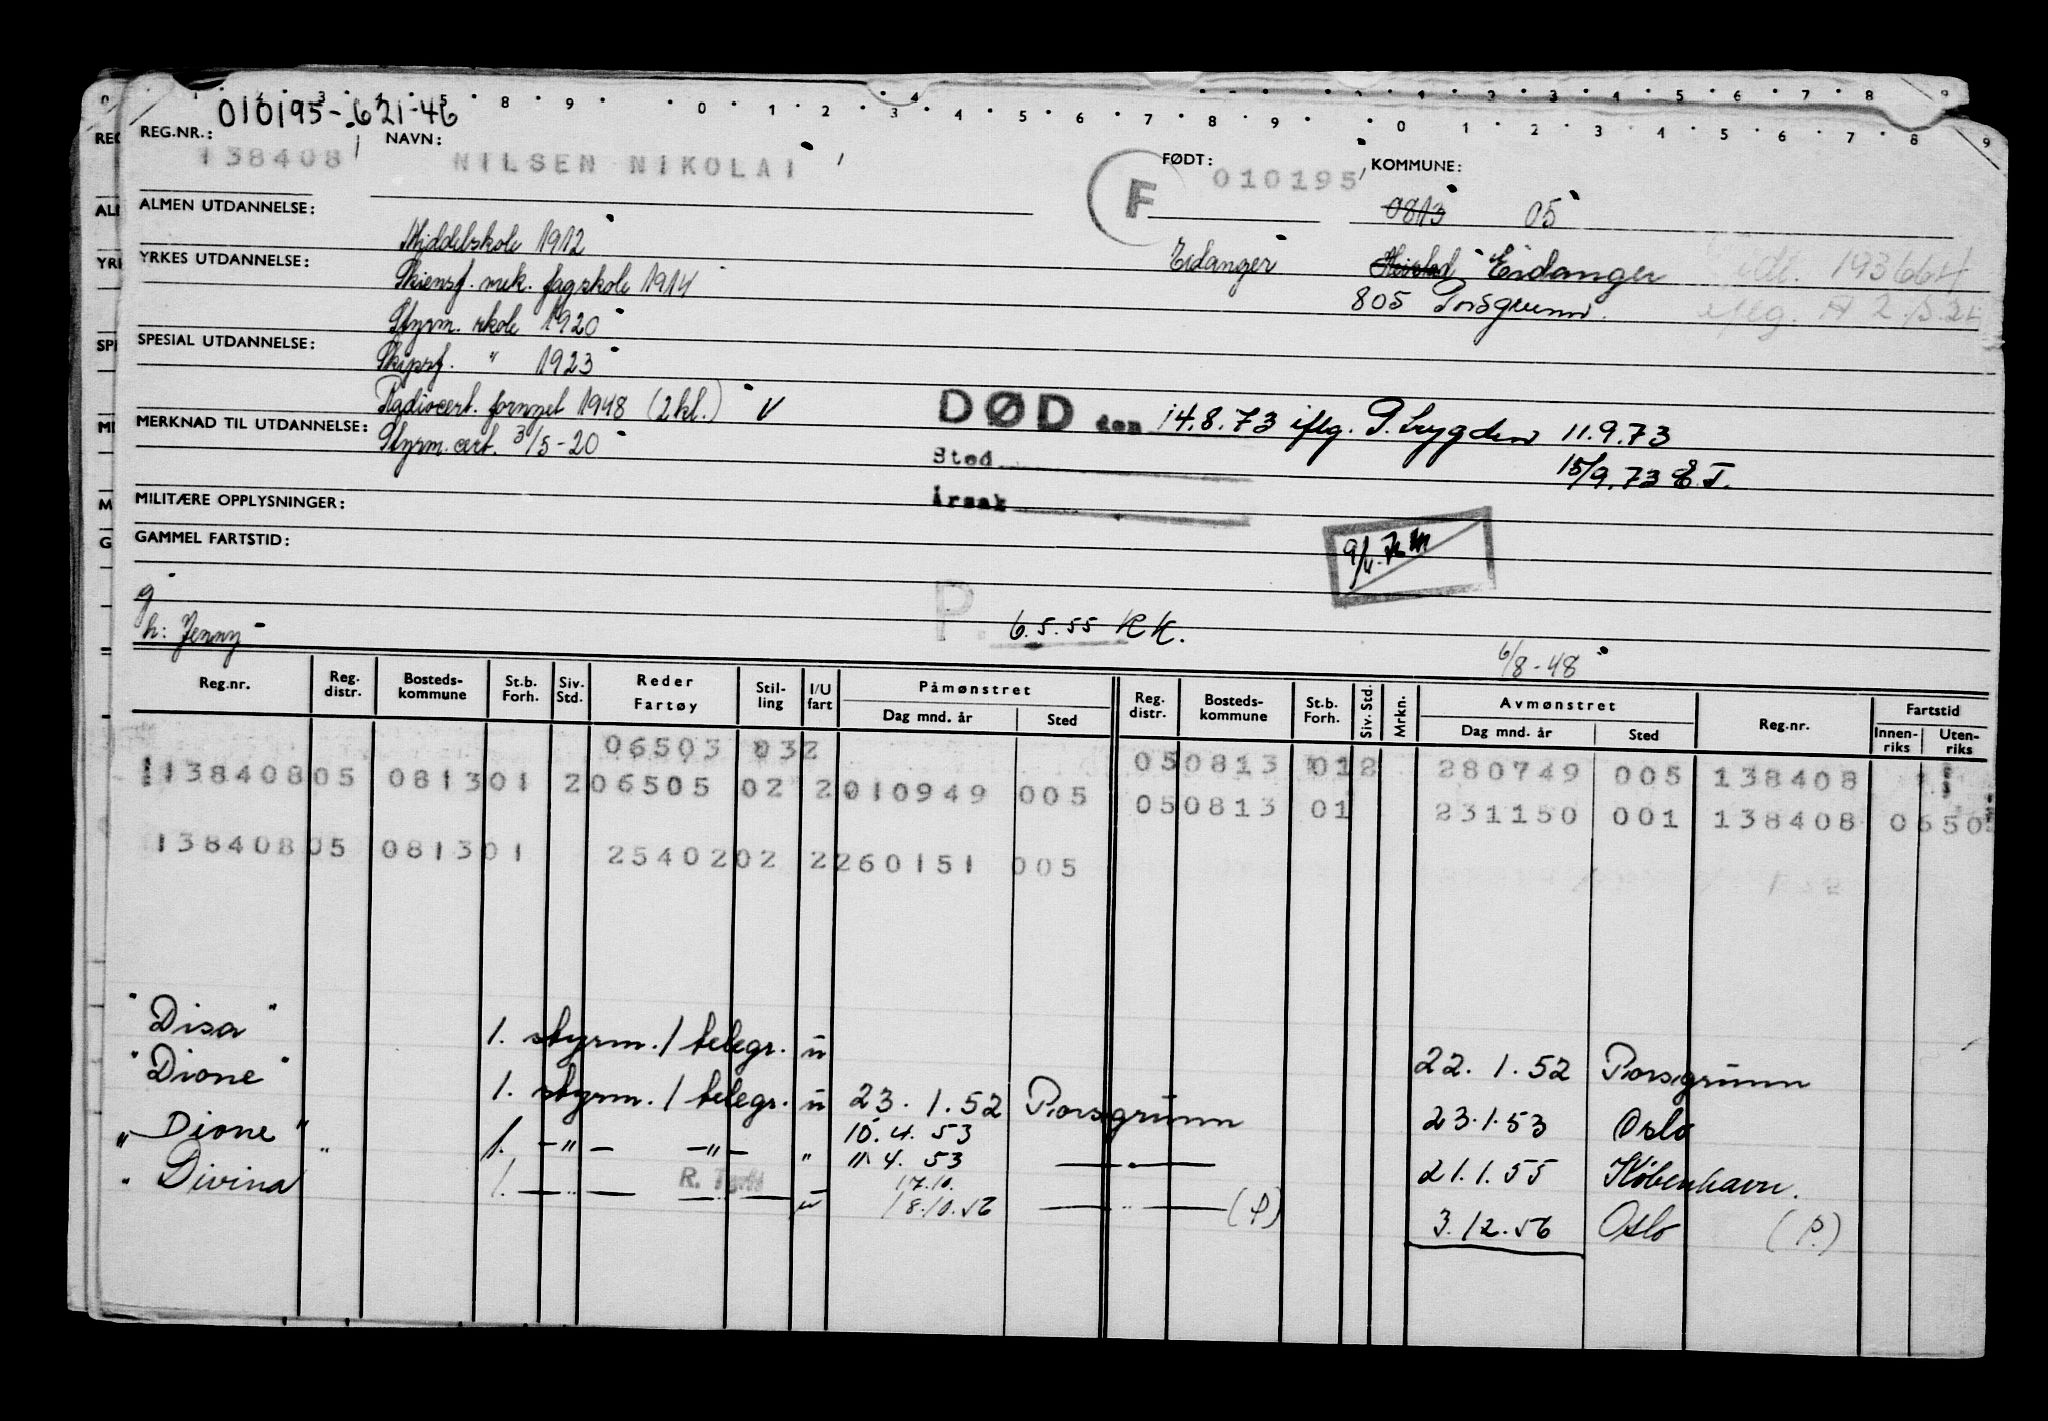 010195-621-46
REG.NR.: 138408
NAVN: NILSEN NIKOLAI
F
FØDT: 010195
KOMMUNE:
0813 05
ALMEN UTDANNELSE:
Middelskole 1912
Eidanger
Eidanger
YRKES UTDANNELSE:
Skiensf. mek. fagskole 1914
805 Porsgrunn.
Styrm. skole 1920
SPESIAL UTDANNELSE:
Skipsf. " 1923
Radiocert. fornyet 1948 (2 kl.) V
DØD den 14.8.73 iflg. P. Lygden 11.9.73
MERKNAD TIL UTDANNELSE:
Styrm. cert. 3/5-20
Sted
15/9.73 E.T.
Årsak
MILITÆRE OPPLYSNINGER:
GAMMEL FARTSTID:
g
P. 6.5.55 KK.
h: Jenny
6/8-48
Reg.nr. Reg. distr. Bosteds-kommune St.b. Forh. Siv. Std. Reder Fartøy Stil-ling I/U fart Påmønstret Dag mnd. år Sted Reg. distr. Bosteds-kommune St.b. Forh. Siv. Std. Mrkn. Avmønstret Dag mnd. år Sted Reg.nr. Fartstid Innen-riks Uten-riks
06503 032 050813 012 280749 005 138408
138408 05 0813 01 2 06505 02 2 010949 005 050813 01 231150 001 138408 0650
138408 05 0813 01 25402 02 2 260151 005
"Disa" 1. styrm. / telegr. u 22.1.52 Porsgrunn
"Dione" 1. styrm. / telegr. u 23.1.52 Porsgrunn 23.1.53 Oslo
10.4.53
"Dione" " 1. -"- -"- " 11.4.53 — " — 21.1.55 København.
17.10.
"Divina 1. — " — — u 18.10.56 — " — (P) 3.12.56 Oslo (P.)